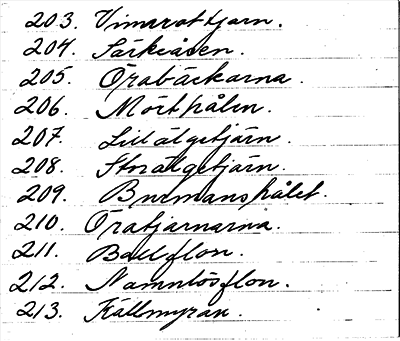 203. Vinnrottjärn.
204. Särkiåsen.
205. Örabäckarna.
206. Mörthålen.
207. Lill älgetjärn.
208. Storälgetjärn.
209. Buemanshålet.
210. Öratjärnarna.
211. Ballflon.
212. Namnlösflon.
213. Källmyran.